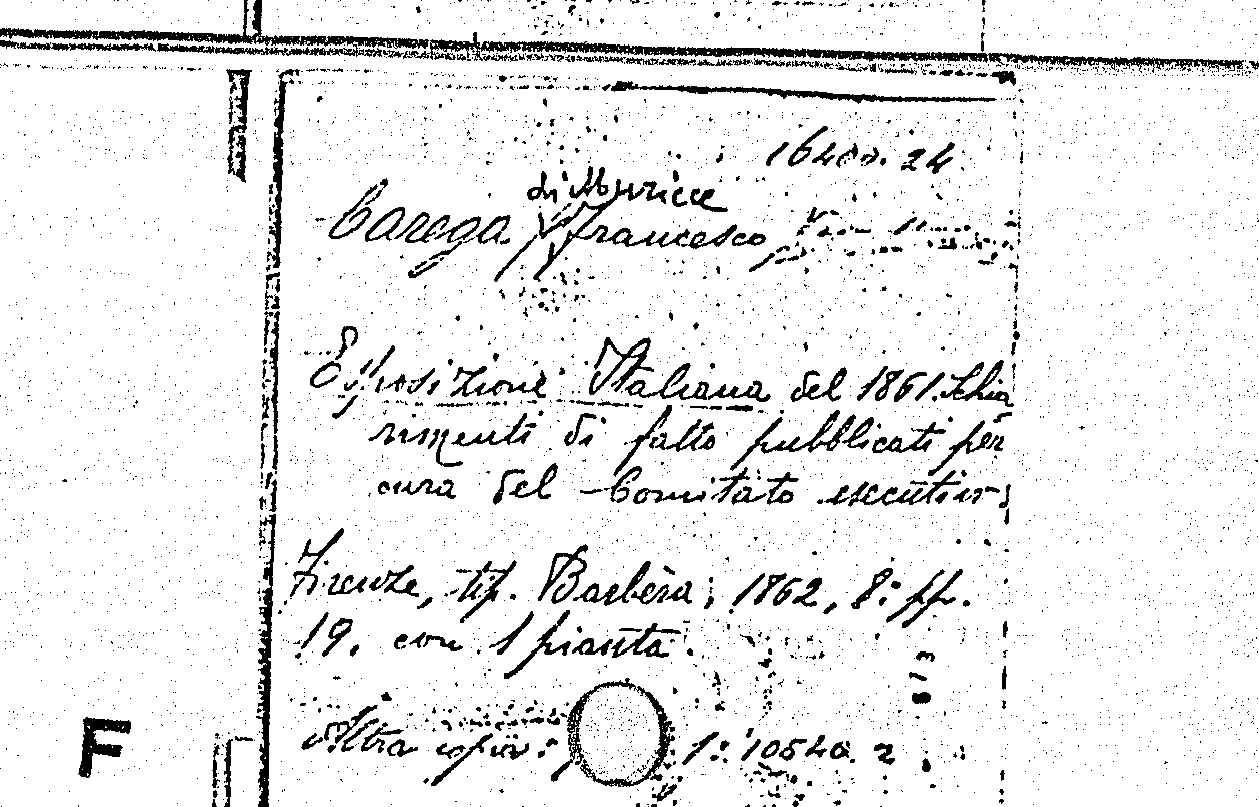 16400. 24
di Muricce
Carega Francesco
Esposizione Italiana del 1861. Schia
rimenti di fatto pubblicati per
cura del Comitato esecutivo
Firenze, tip. Barbèra, 1862, 8.° pp.
19. con 1 pianta.
Altra copia: 1: 10540. 2
F